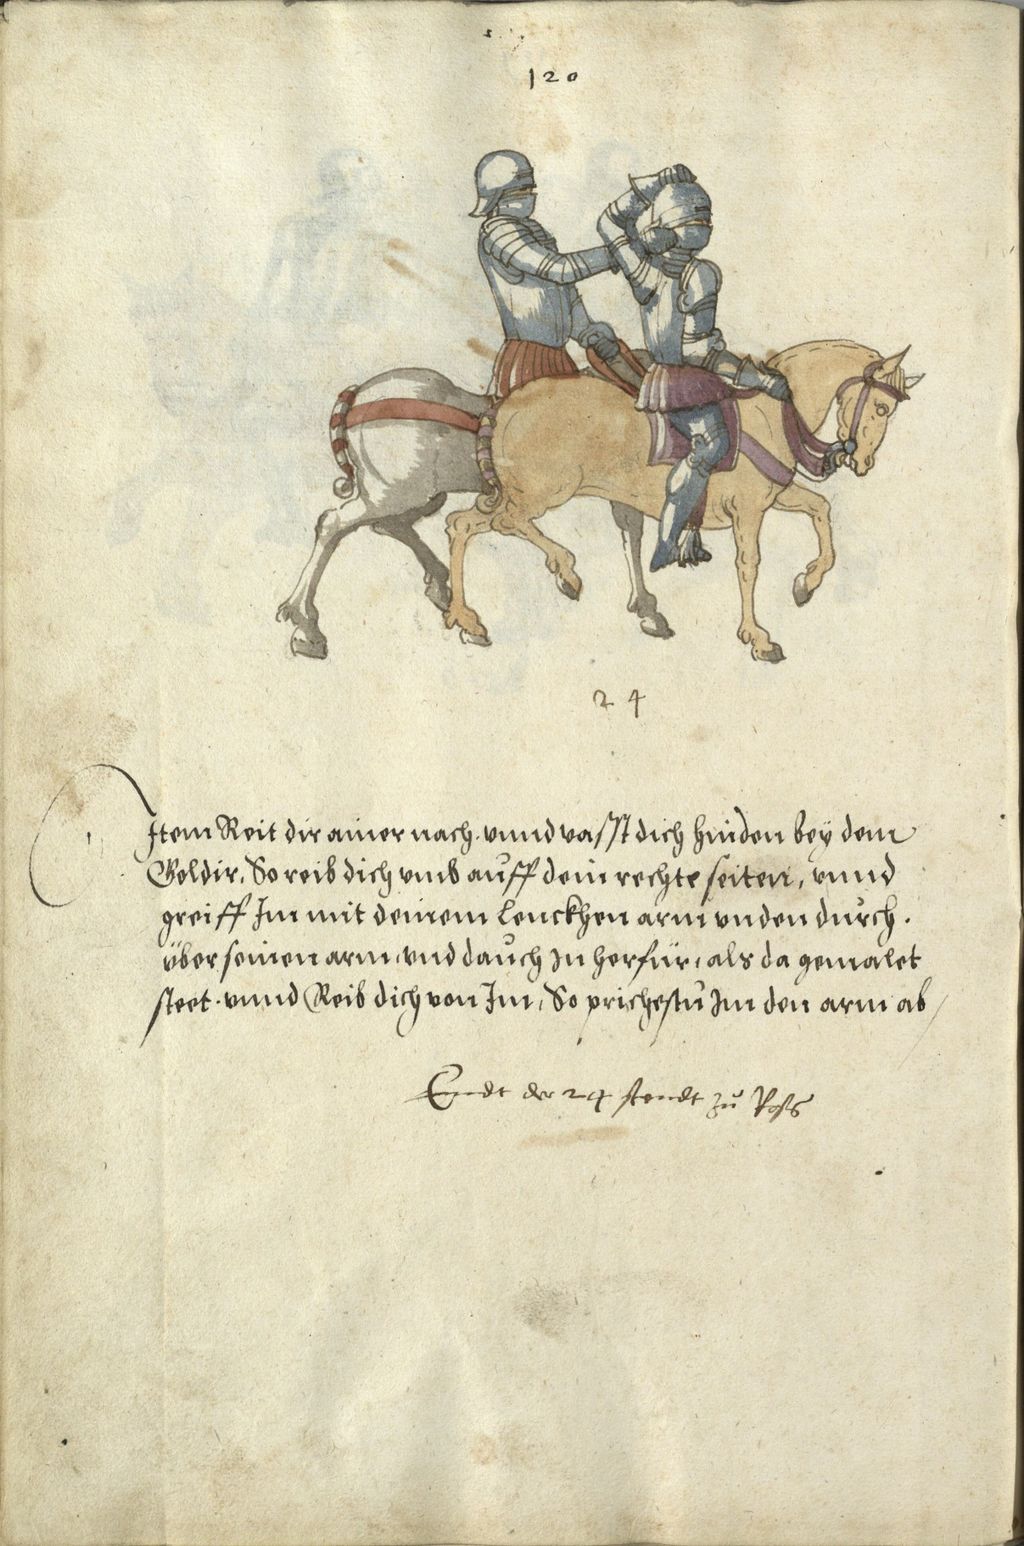 120
24
Item Reit dir ainer nach vnnd vasst dich hinden bey dem
Goldir, So reib dich vmb auff dein rechte seiten, vnnd
greiff Im mit deinem lenckhen arm vnden durch.
über seinen arm, vnd dauch In herfür, als da gemalet
steet. vnnd Reib dich von Im, So prichestu Im den arm ab
Endt der 24 stendt zu Ross